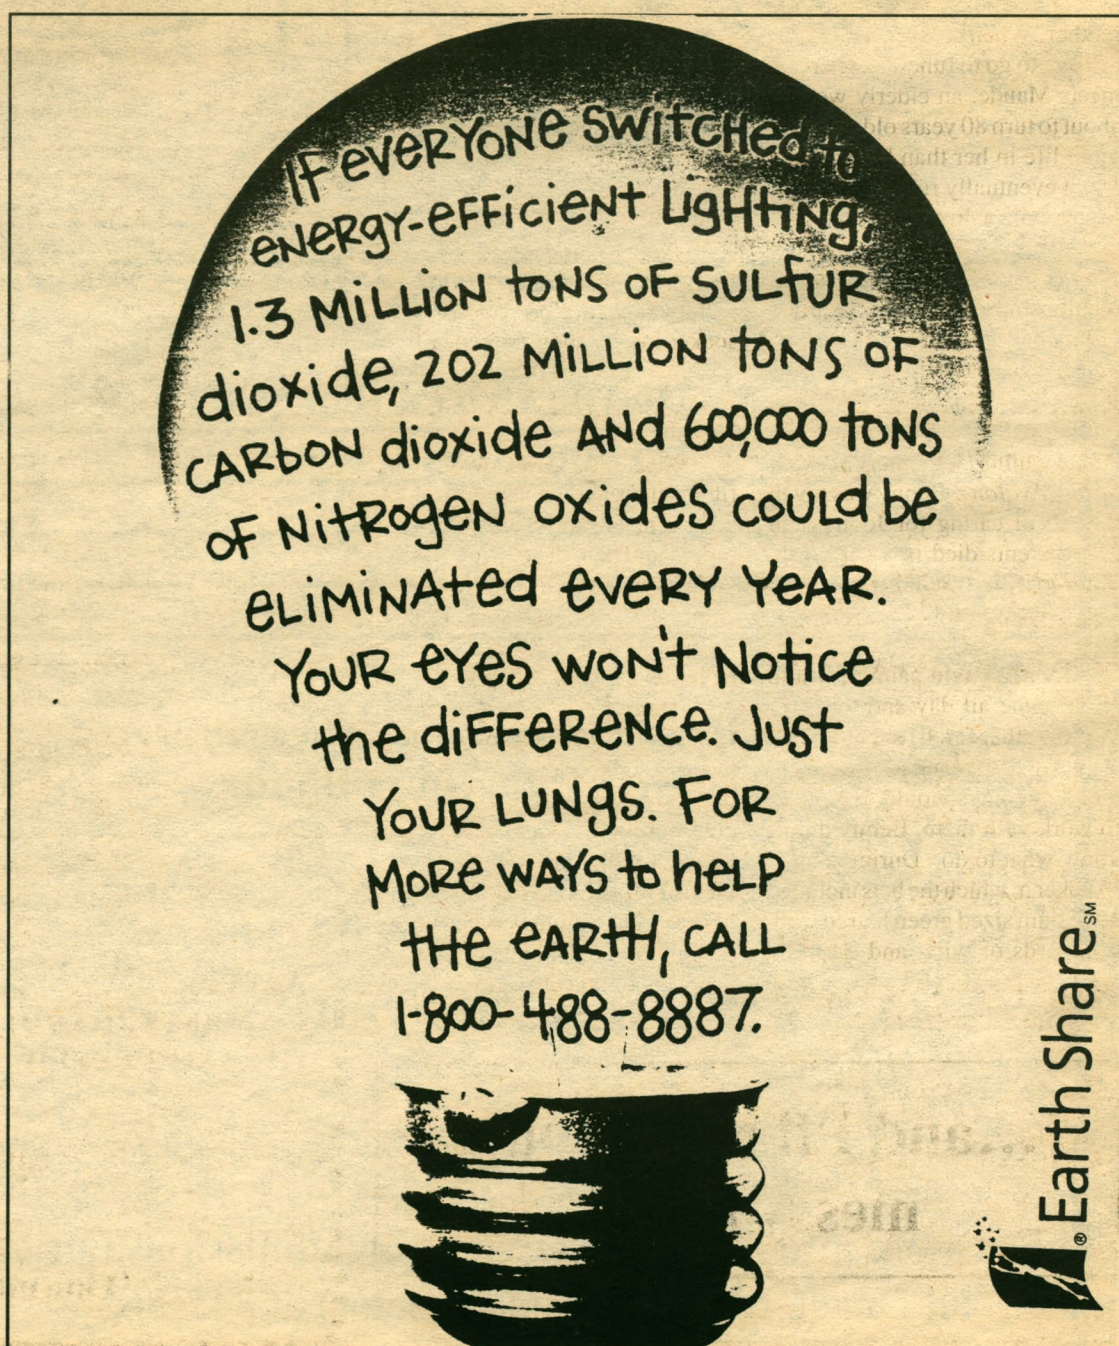 IF eVERYONE SWitCHed to
eNeRgY-eFFiCieNt LigHtiNg,
1.3 MiLLiON tONS OF SULfUR
dioxide, 202 MiLLiON tONS OF
CARbON dioxide ANd 600,000 tONS
OF NitRogeN oxides COULd be
eLiMiNAted eVeRY YeAR.
YOUR eYeS WON't Notice
the diFFeReNCe. JUSt
YOUR LUNgS. FOR
MoRe WAYS to heLP
tHe eARtH, CALL
1-800-488-8887.
® Earth Share SM